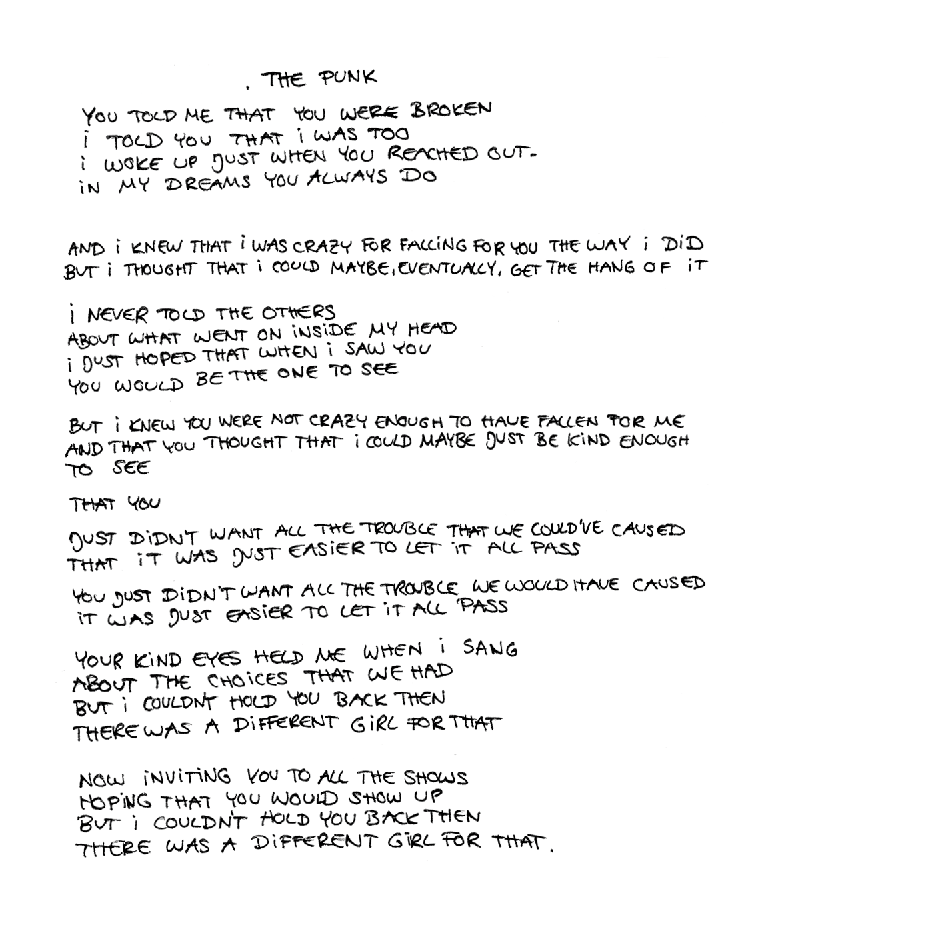 . THE PUNK
YOU TOLD ME THAT YOU WERE BROKEN
i TOLD YOU THAT i WAS TOO
i WOKE UP JUST WHEN YOU REACHED OUT-
iN MY DREAMS YOU ALWAYS DO
AND i KNEW THAT i WAS CRAZY FOR FALLiNG FOR YOU THE WAY i DiD
BUT i THOUGHT THAT i COULD MAYBE, EVENTUALLY, GET THE HANG OF iT
i NEVER TOLD THE OTHERS
ABOUT WHAT WENT ON iNSiDE MY HEAD
i JUST HOPED THAT WHEN i SAW YOU
YOU WOULD BE THE ONE TO SEE
BUT i KNEW YOU WERE NOT CRAZY ENOUGH TO HAVE FALLEN FOR ME
AND THAT YOU THOUGHT THAT i COULD MAYBE JUST BE KiND ENOUGH
TO SEE
THAT YOU
JUST DiDN'T WANT ALL THE TROUBLE THAT WE COULD'VE CAUSED
THAT iT WAS JUST EASiER TO LET iT ALL PASS
YOU JUST DiDN'T WANT ALL THE TROUBLE WE WOULD HAVE CAUSED
iT WAS JUST EASiER TO LET iT ALL PASS
YOUR KiND EYES HELD ME WHEN i SANG
ABOUT THE CHOiCES THAT WE HAD
BUT i COULDN'T HOLD YOU BACK THEN
THERE WAS A DiFFERENT GiRL FOR THAT
NOW iNViTiNG YOU TO ALL THE SHOWS
HOPiNG THAT YOU WOULD SHOW UP
BUT i COULDN'T HOLD YOU BACK THEN
THERE WAS A DiFFERENT GiRL FOR THAT.